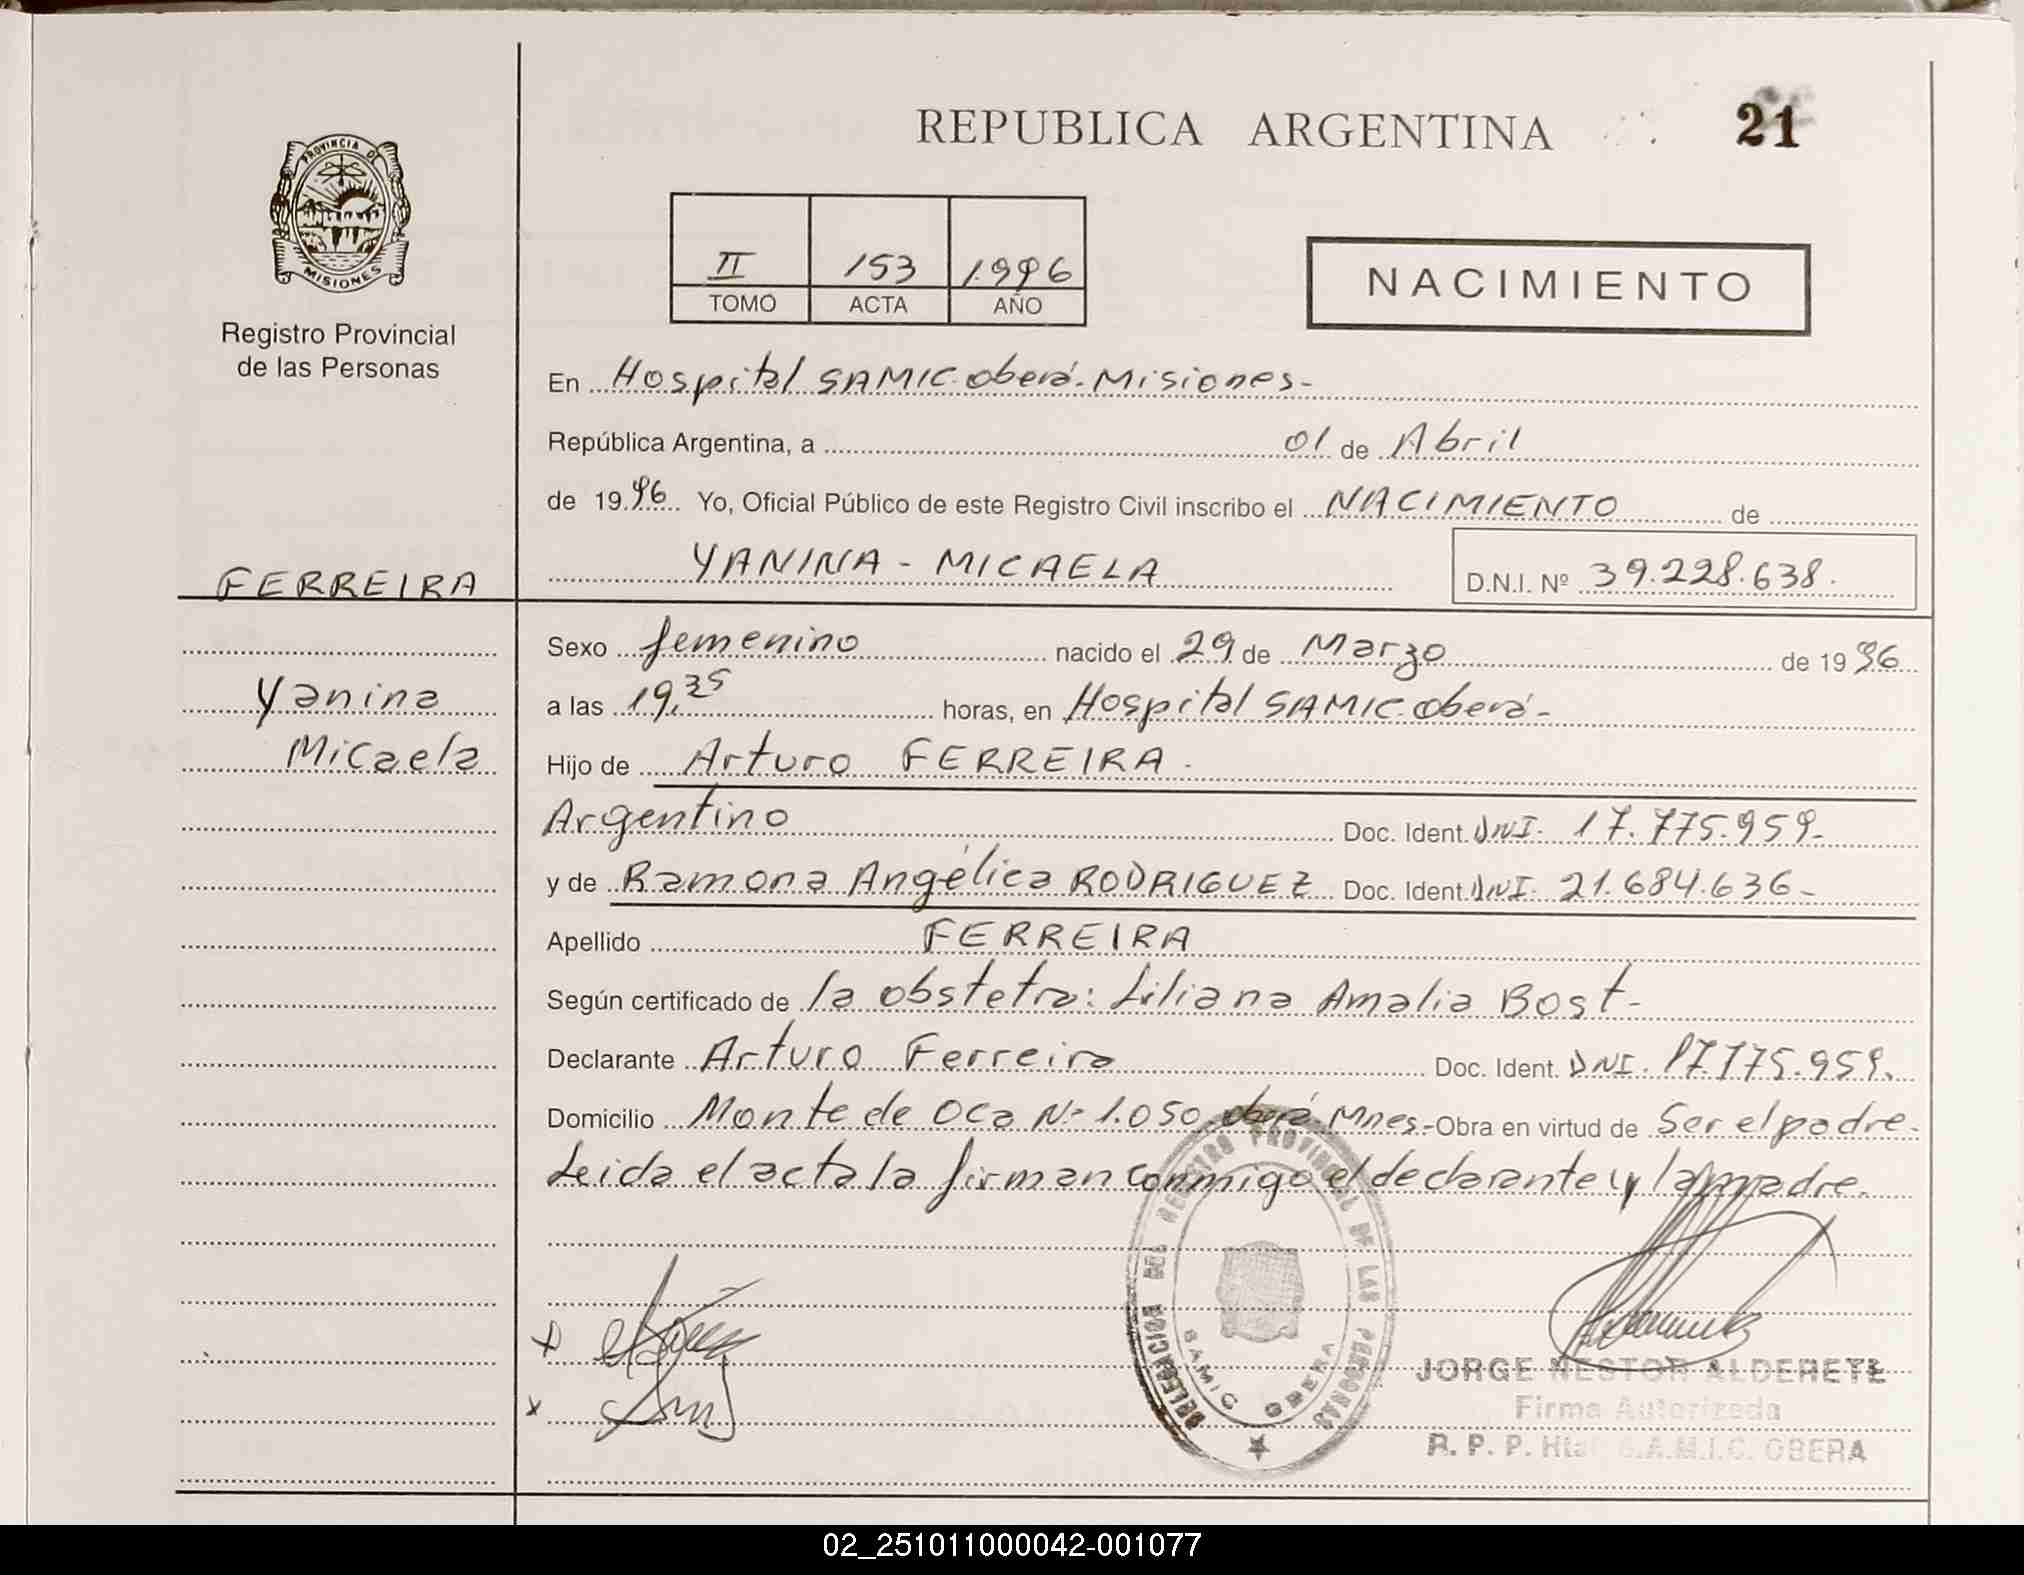 REPUBLICA ARGENTINA
21
PROVINCIA DE
MISIONES
Registro Provincial
de las Personas
II 153 1996
TOMO ACTA AÑO
NACIMIENTO
En Hospital SAMIC. oberá. Misiones-
República Argentina, a 01 de Abril
de 19 96 Yo, Oficial Público de este Registro Civil inscribo el NACIMIENTO de
FERREIRA
YANINA - MICAELA D.N.I. Nº 39.228.638.
Sexo femenino nacido el 29 de Marzo de 19 96
Yanina
a las 19,35 horas, en Hospital SAMIC oberá-
Micaela
Hijo de Arturo FERREIRA -
Argentino Doc. Ident. DNI. 17.775.959-
y de Ramona Angélica RODRIGUEZ Doc. Ident. DNI. 21.684.636-
Apellido FERREIRA
Según certificado de la obstetra: Liliana Amalia Bost-
Declarante Arturo Ferreira Doc. Ident. DNI. 17.775.959.
Domicilio Monte de Oca Nº 1.050 oberá Mnes.- Obra en virtud de Ser el padre-
Leida el acta la firman conmigo el declarante y la madre.
DELEGACION DEL REGISTRO PROVINCIAL DE LAS PERSONAS
SAMIC OBERA
JORGE NESTOR ALDERETE
Firma Autorizada
R. P. P. S.A.M.I.C. OBERA
02_251011000042-001077